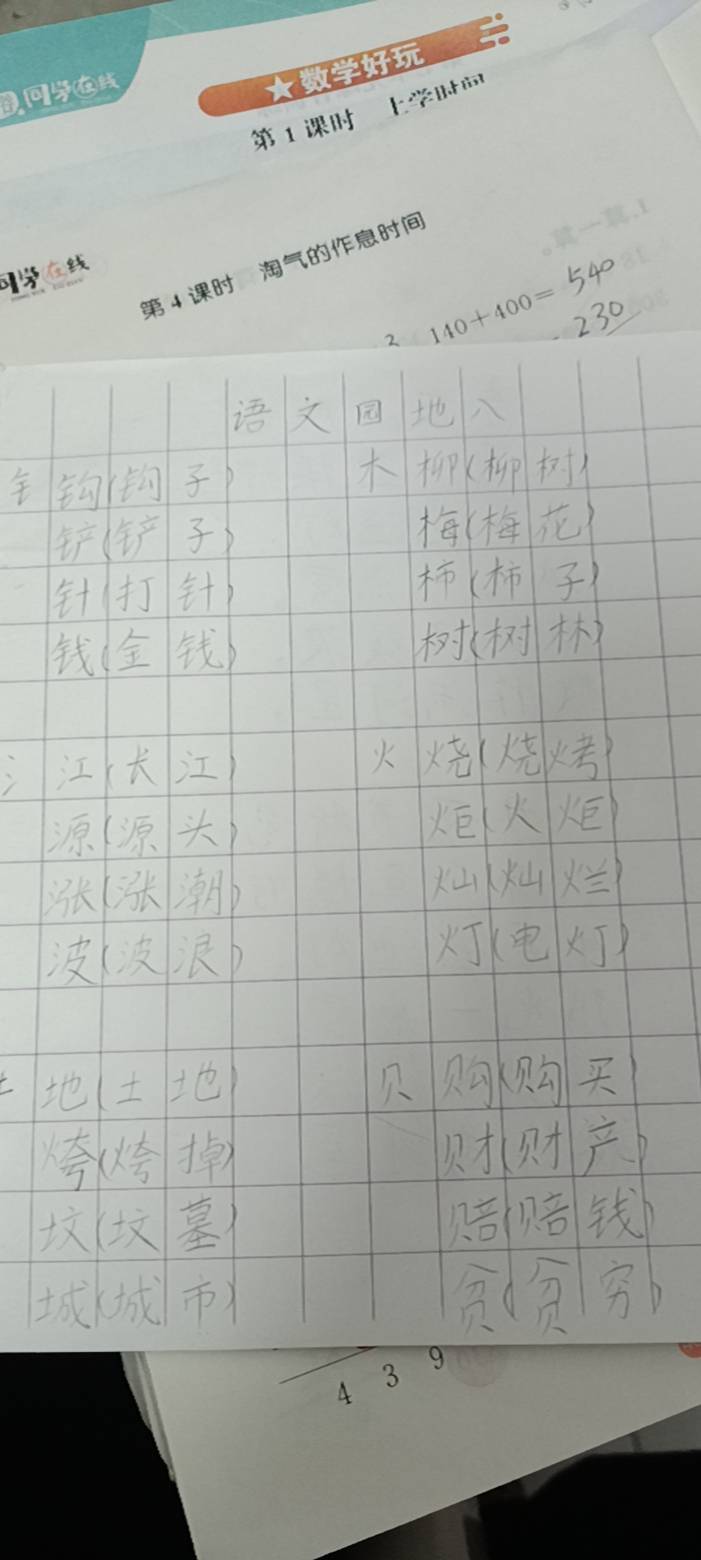 同学在线
★数学好玩
第 1 课时 上学时间
同学在线
第 4 课时 淘气的作息时间
1.算一算。
140+400=540
230
语文园地八
钅 钩(钩子) 木 柳(柳树)
铲(铲子) 梅(梅花)
针(打针) 柿(柿子)
钱(金钱) 树(树林)
氵 江(长江) 火 烧(烧烤)
源(源头) 炬(火炬)
涨(涨潮) 灿(灿烂)
波(波浪) 灯(电灯)
土 地(土地) 贝 购(购买)
垮(垮掉) 财(财产)
坟(坟墓) 赔(赔钱)
城(城市) 贫(贫穷)
4 3 9